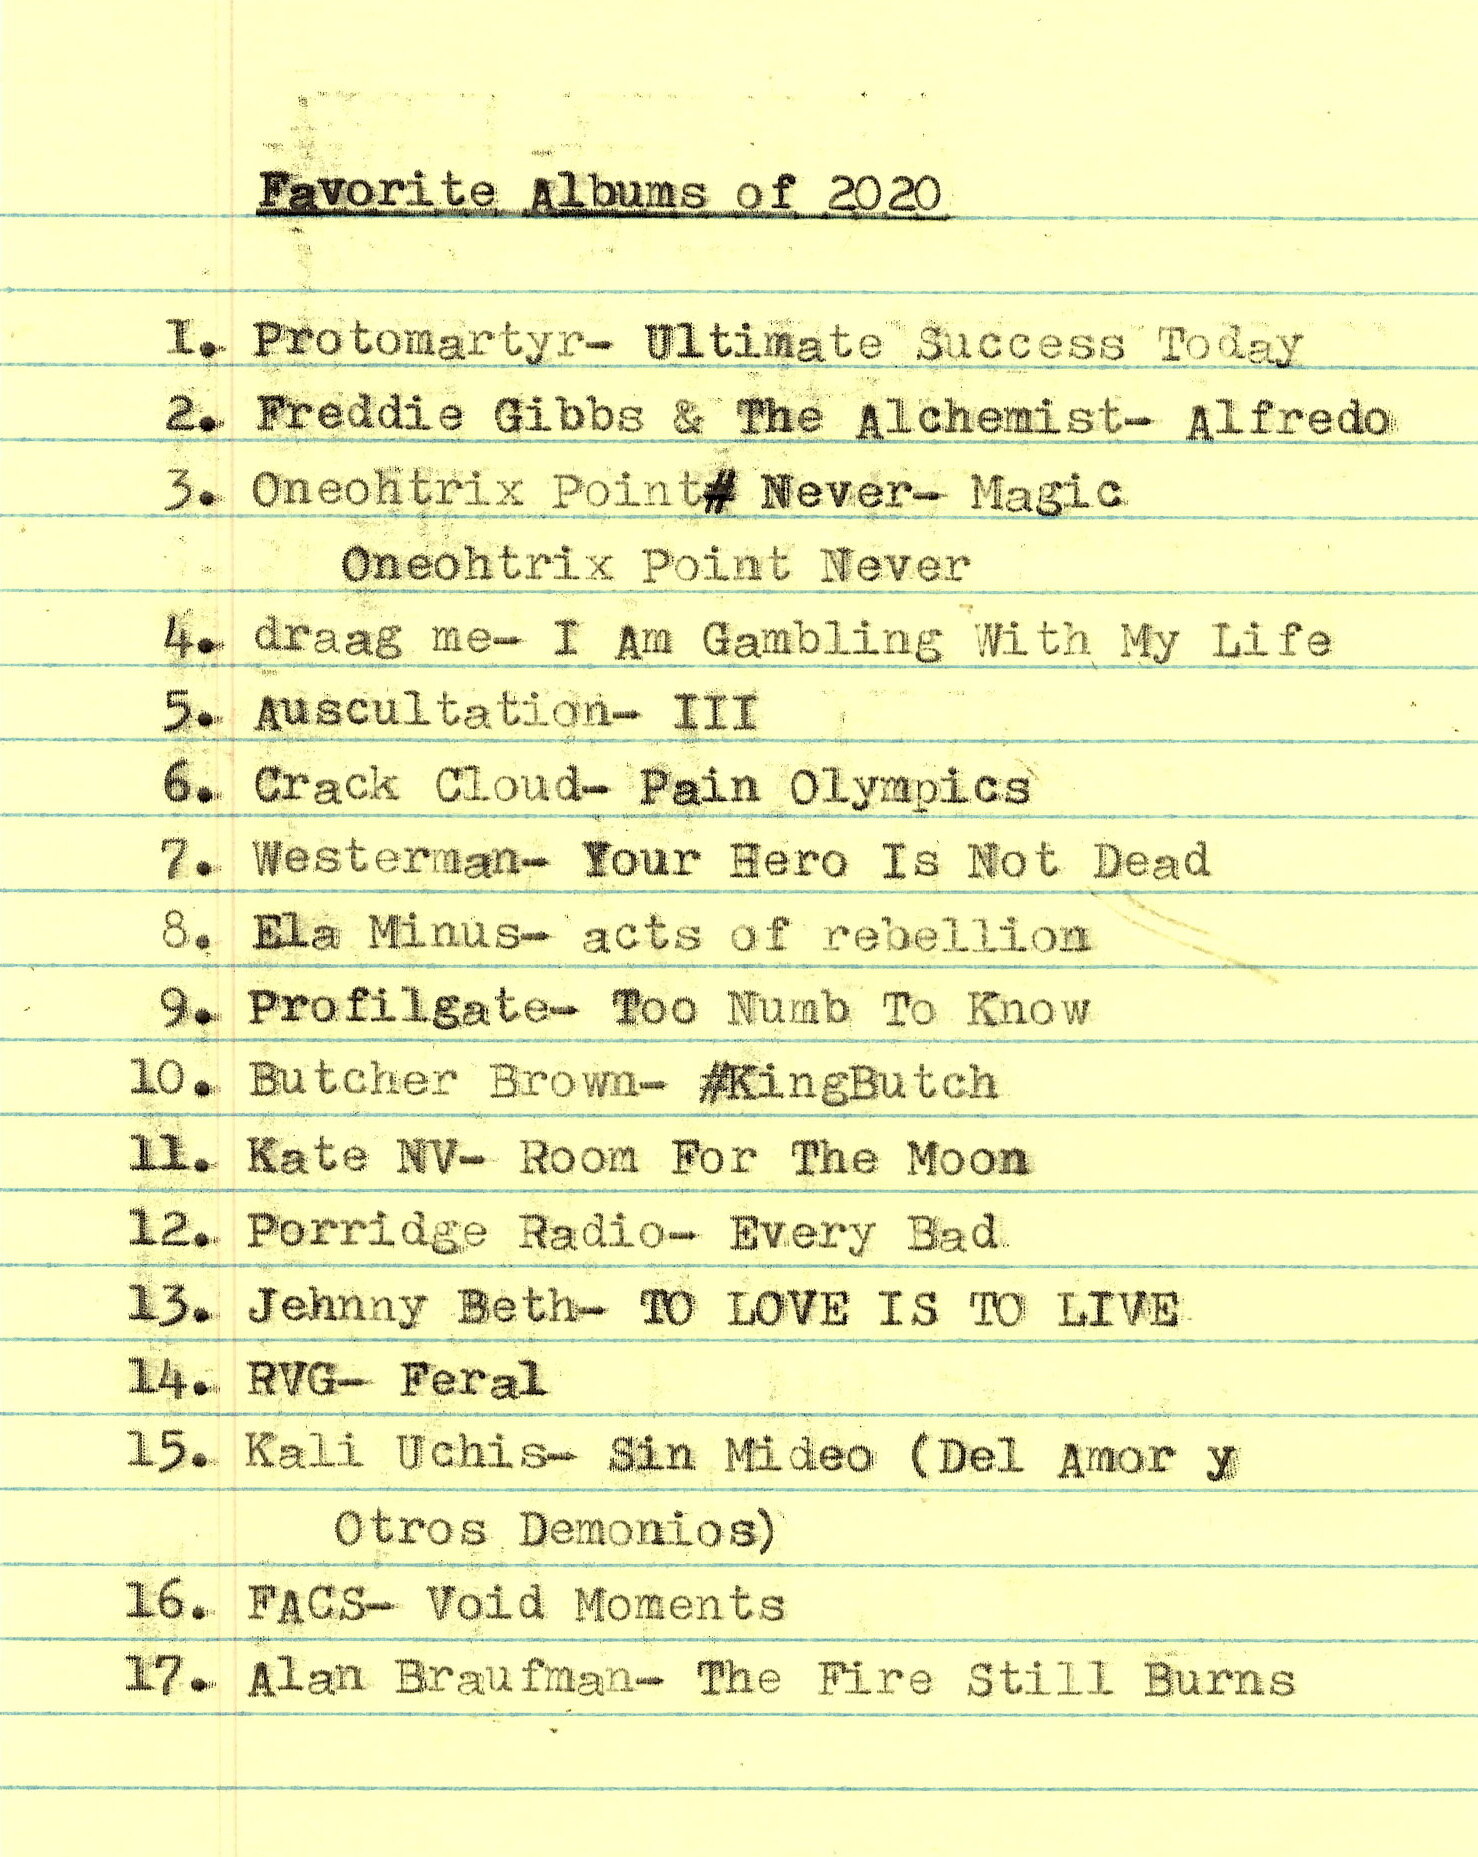 Favorite Albums of 2020
1. Protomartyr- Ultimate Success Today
2. Freddie Gibbs & The Alchemist- Alfredo
3. Oneohtrix Point# Never- Magic
Oneohtrix Point Never
4. draag me- I Am Gambling With My Life
5. Auscultation- III
6. Crack Cloud- Pain Olympics
7. Westerman- Your Hero Is Not Dead
8. Ela Minus- acts of rebellion
9. Profilgate- Too Numb To Know
10. Butcher Brown- #KingButch
11. Kate NV- Room For The Moon
12. Porridge Radio- Every Bad
13. Jehnny Beth- TO LOVE IS TO LIVE
14. RVG- Feral
15. Kali Uchis- Sin Mideo (Del Amor y
Otros Demonios)
16. FACS- Void Moments
17. Alan Braufman- The Fire Still Burns